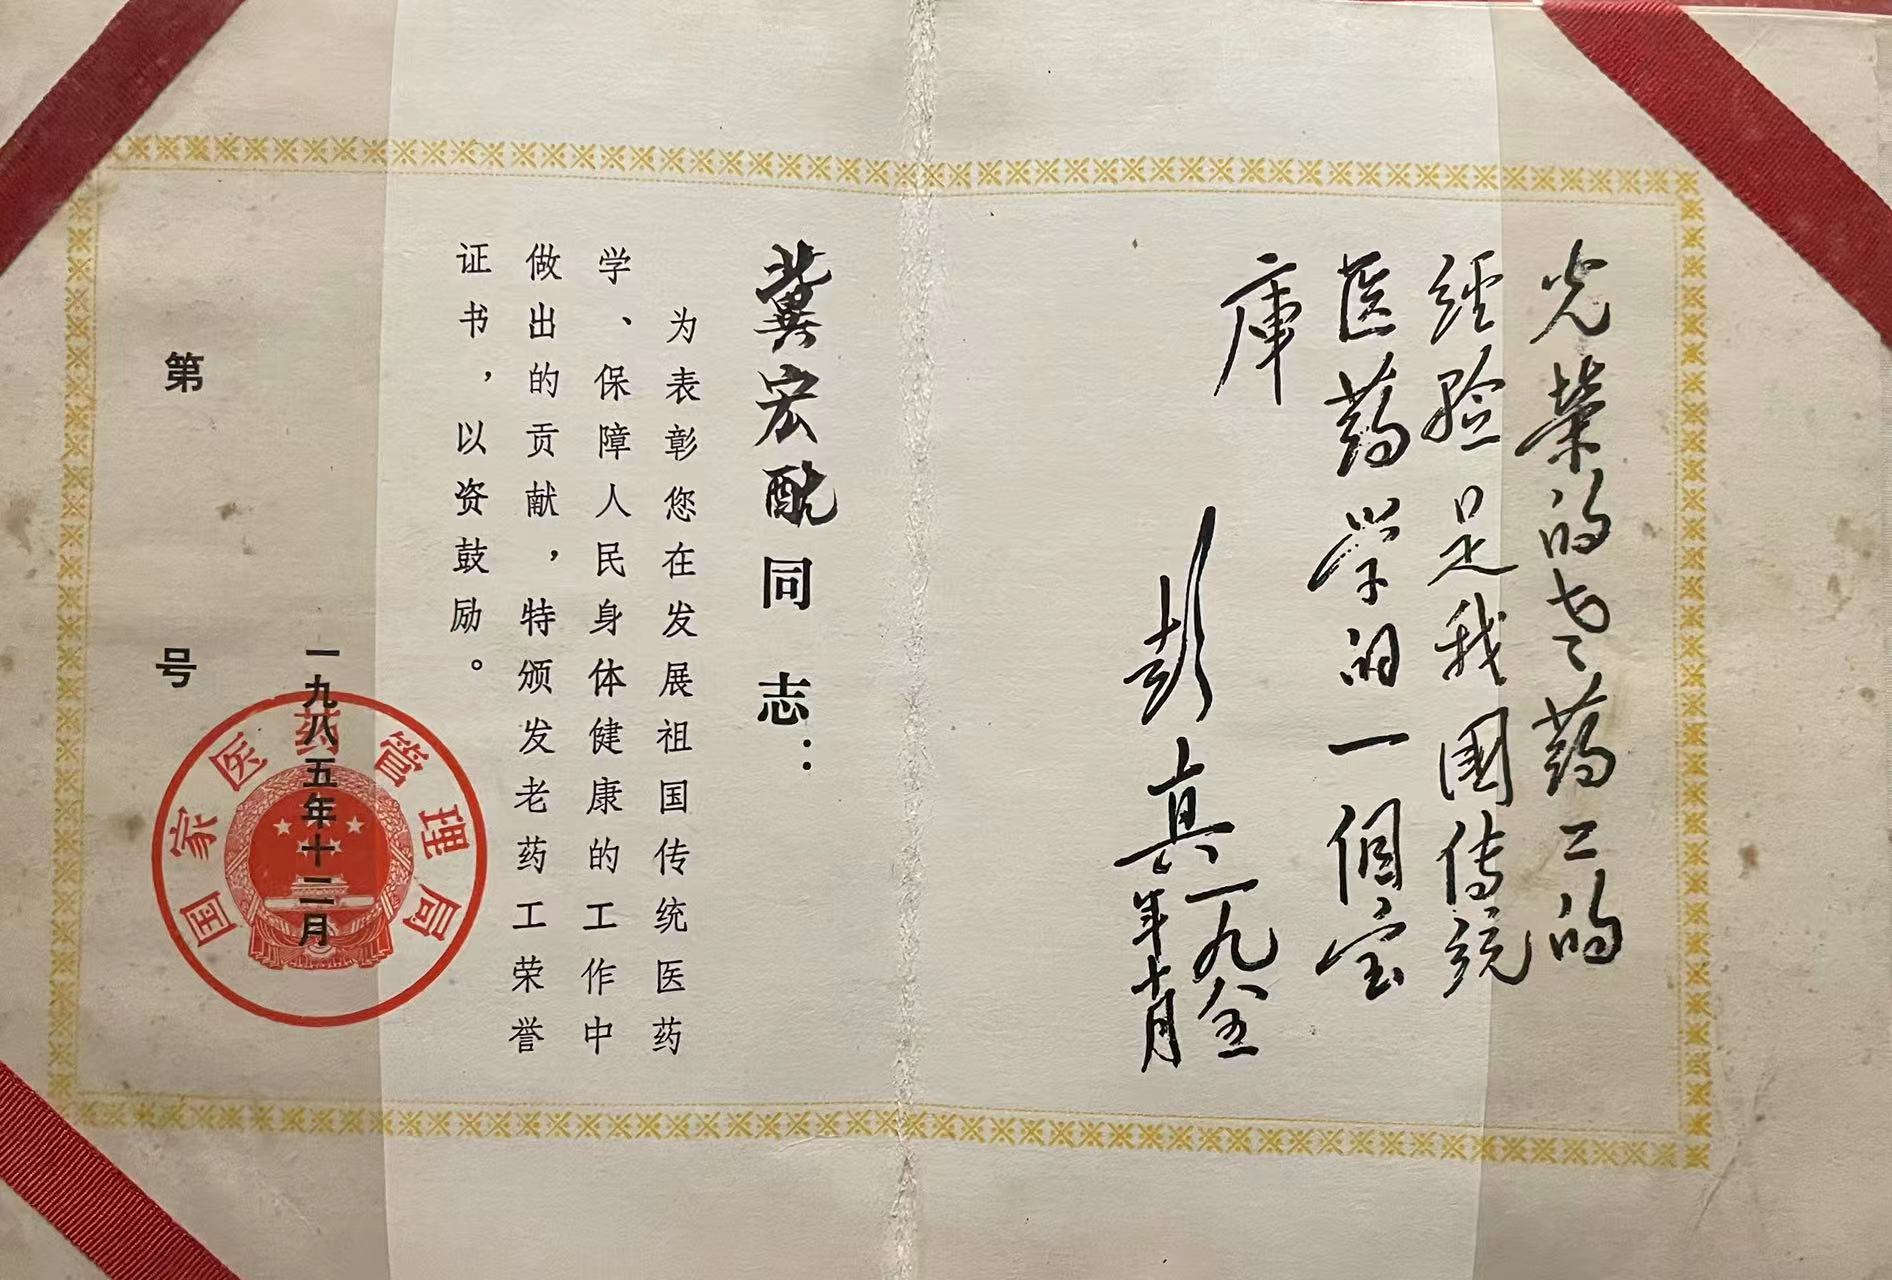 光荣的老药工的
经验是我国传统
医药学的一个宝
库
彭真一九八五
年十月
冀宏酕同志：
为表彰您在发展祖国传统医药
学、保障人民身体健康的工作中
做出的贡献，特颁发老药工荣誉
证书，以资鼓励。
一九八五年十二月
国家医药管理局
第 号